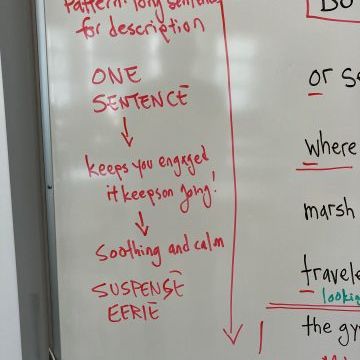 Pattern: long sentence
for description
ONE
SENTENCE
keeps you engaged
it keeps on going!
Soothing and calm
SUSPENSE
EERIE
or
where
marsh
the